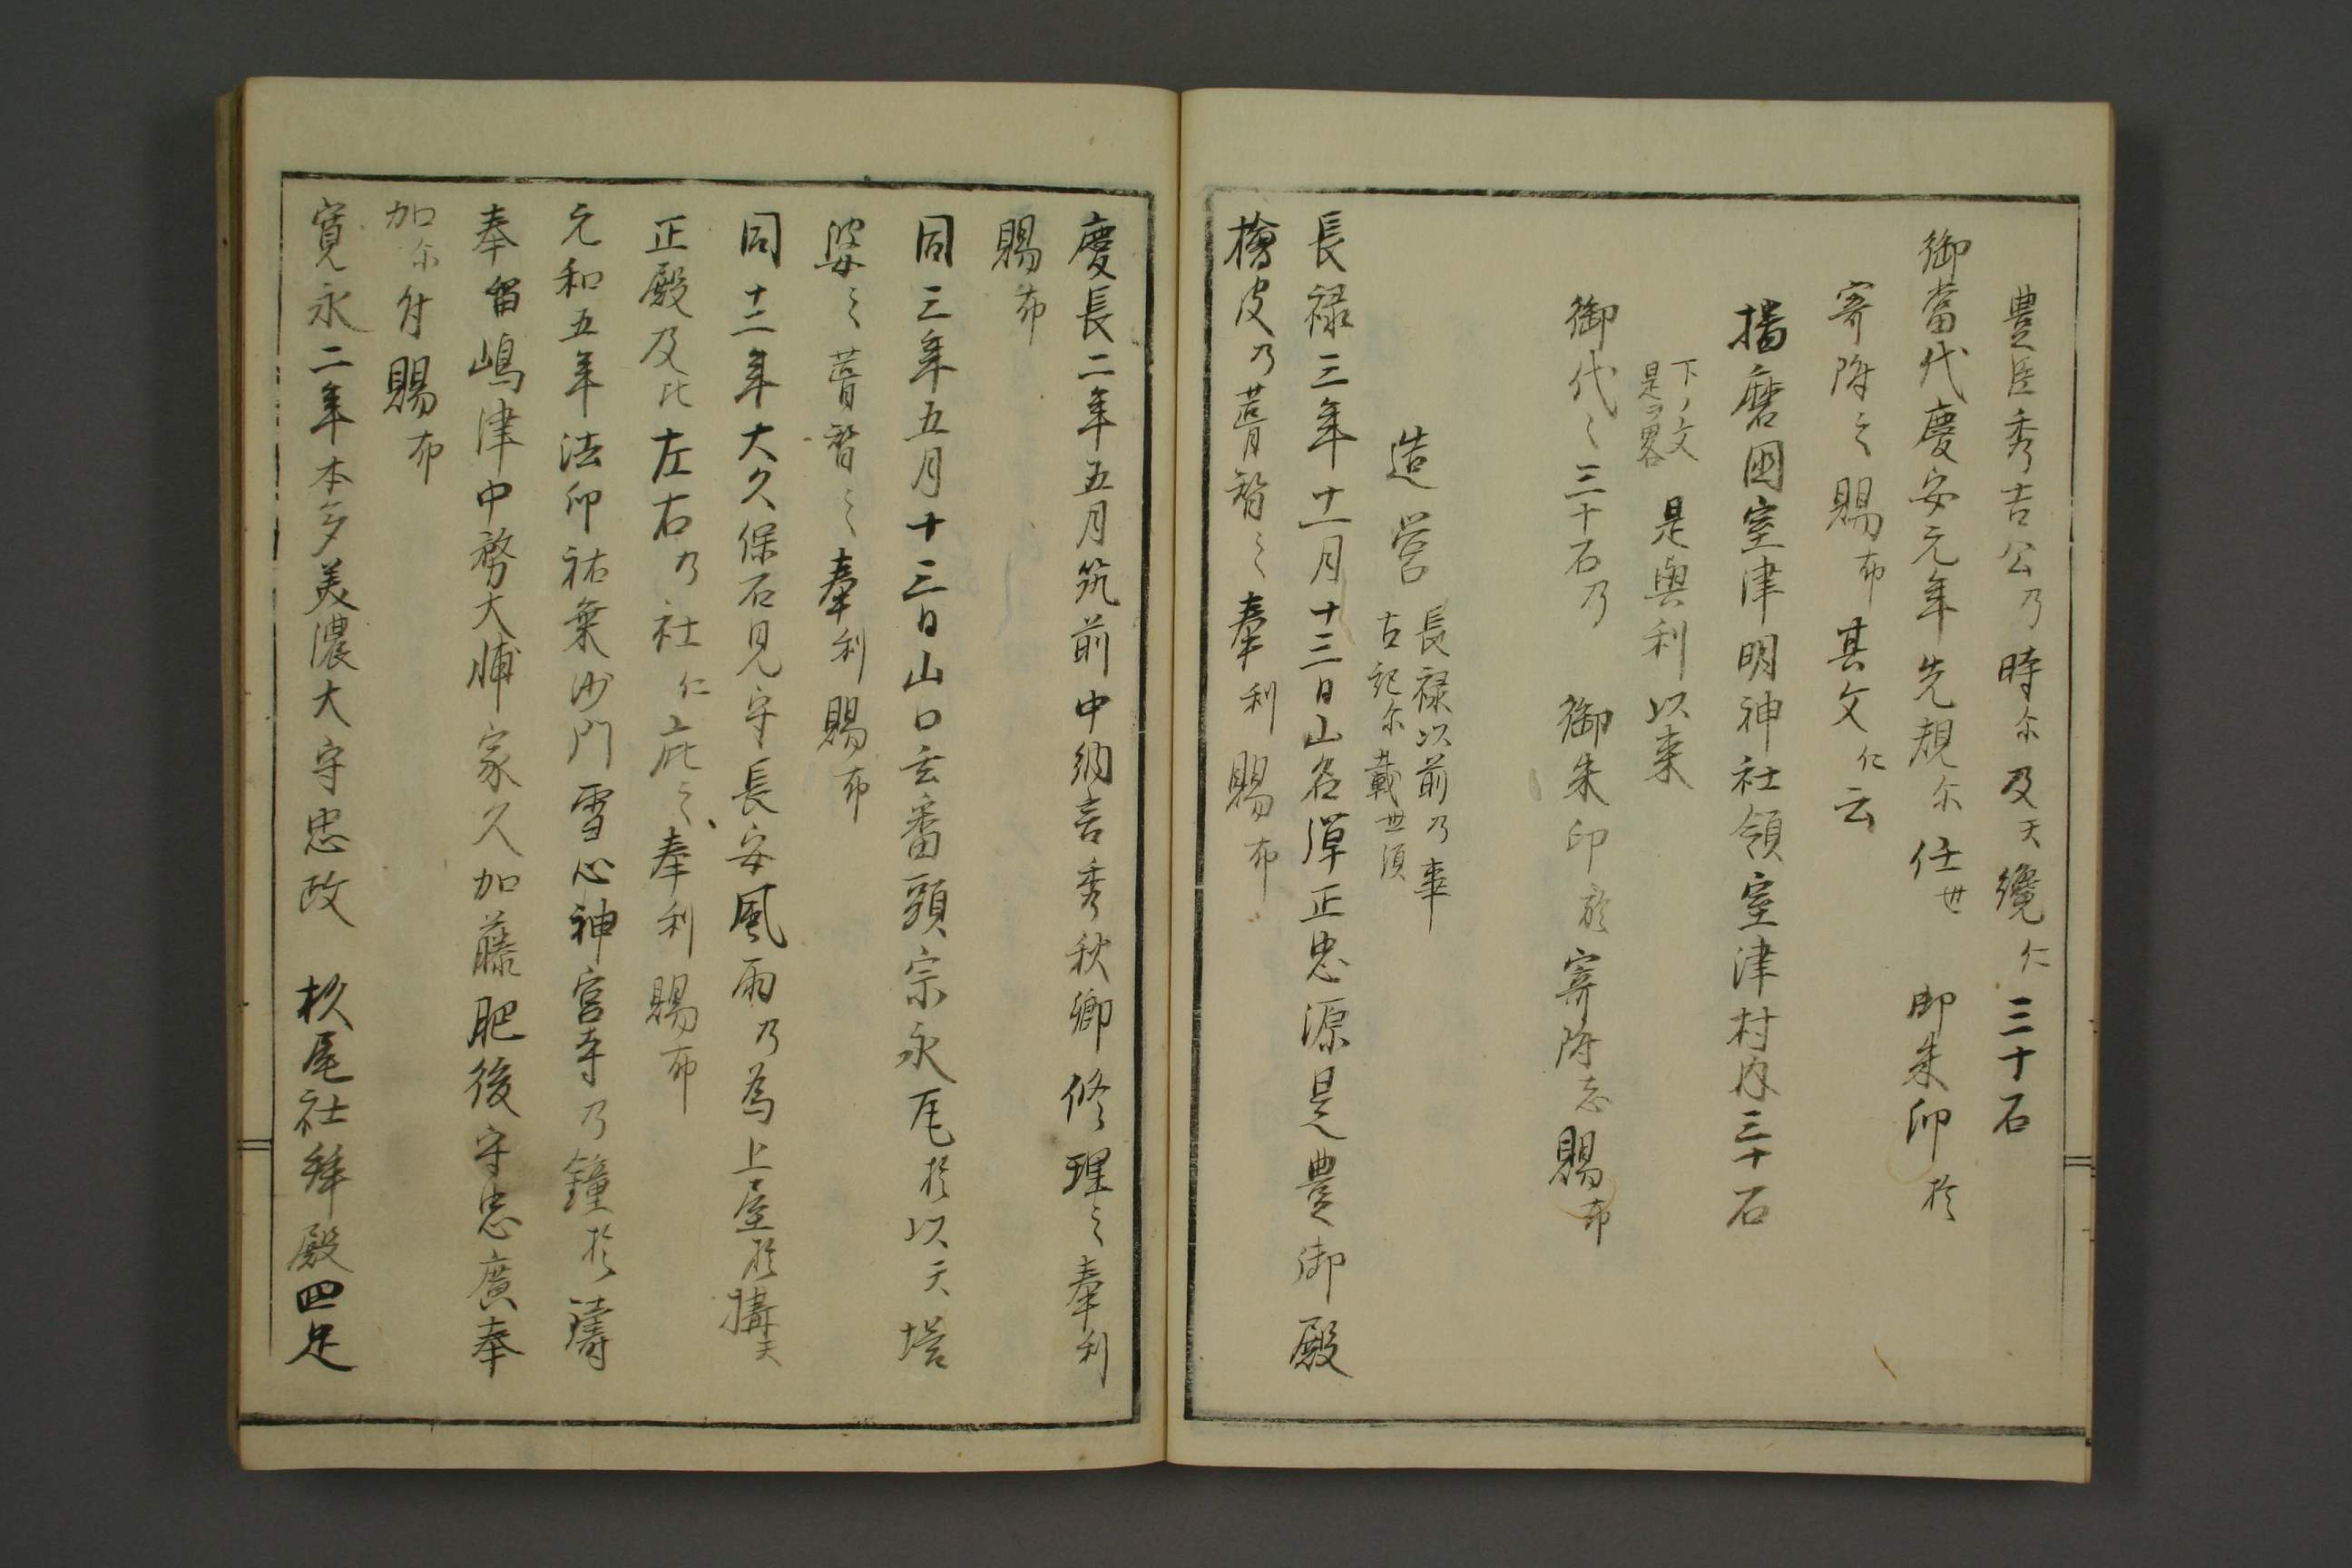 豊臣秀吉公乃時尓及天纔仁三十石
御當代慶安元年先規尓任世 御朱印於
寄附之賜布其文仁云
播磨国室津明神社領室津村内三十石
下ノ文是ヲ畧 是與利以来
御代々三十石乃 御朱印於寄附志賜布
造営 長禄以前乃事古記尓載世須
長禄三年十一月十三日山名弾正忠源是豊御殿
檜皮乃葺替之奉利賜布
慶長二年五月筑前中納言秀秋卿修理之奉利
賜布
同三年五月十三日山口玄蕃頭宗永瓦於以天塔
婆之葺替之奉利賜布
同十二年大久保石見守長安風雨乃為上屋於構天
正殿及比左右乃社仁庇之奉利賜布
元和五年法印祐棄沙門雪心神宮寺乃鐘於鋳
奉留嶋津中務大輔家久加藤肥後守忠廣奉
加尓付賜布
寛永二年本多美濃大守忠政 杦尾社拜殿四足